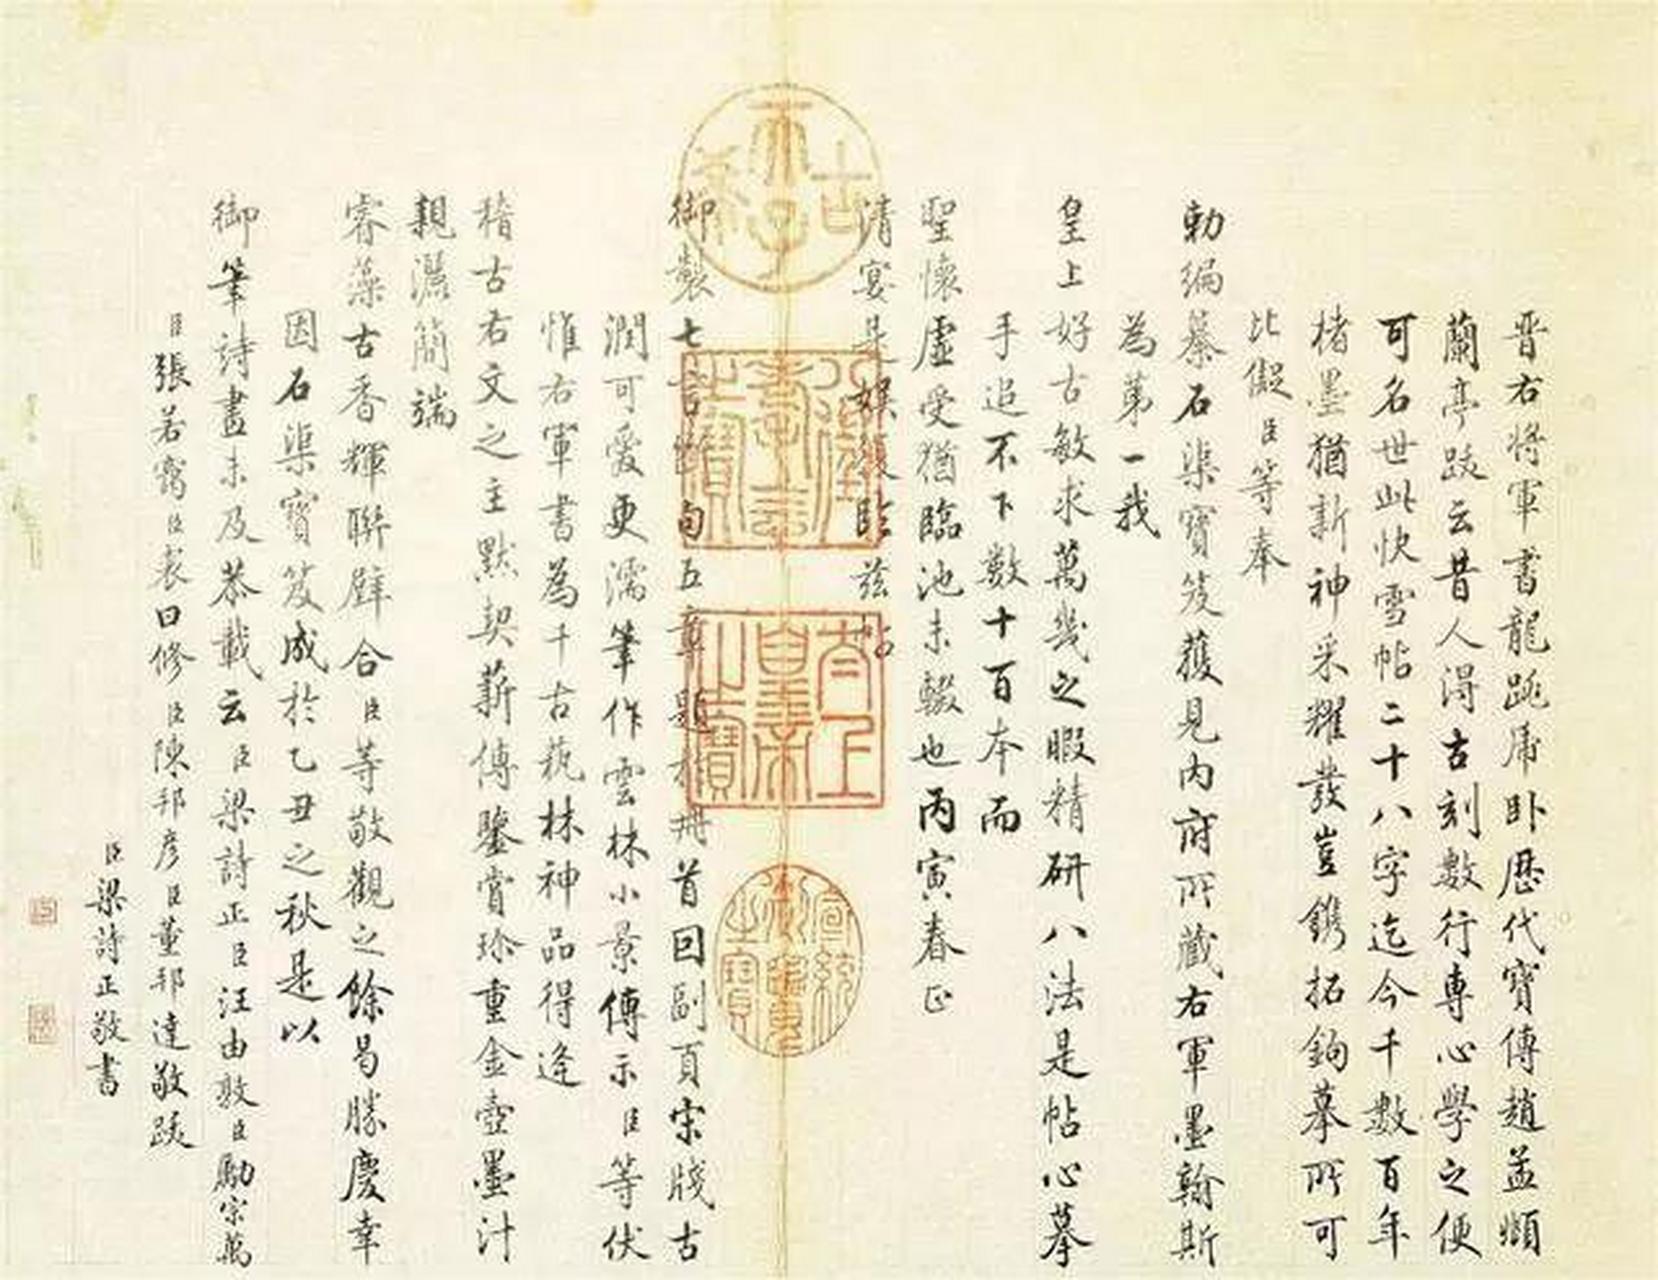 晋右將軍書龍跳虎卧歷代寶傳趙孟頫
蘭亭跋云昔人得古刻數行專心學之便
可名世此快雪帖二十八字迄今千數百年
楮墨猶新神采耀發豈鐫拓鉤摹所可
比儗臣等奉
勅編纂石渠寶笈獲見内府所藏右軍墨翰斯
為第一我
皇上好古敏求萬幾之暇精研八法是帖心摹
手追不下數十百本而
聖懷虛受猶臨池未輟也丙寅春正
清宴是娛復臨兹帖
御製七言斷句五章題於冊首回副頁宋牋古
潤可愛更濡筆作雲林小景傳示臣等伏
惟右軍書為千古蓺林神品得逢
稽古右文之主默契薪傳鑒賞珍重金壺墨汁
親灑簡端
睿藻古香輝聯璧合臣等敬觀之餘曷勝慶幸
因石渠寶笈成於乙丑之秋是以
御筆詩畫未及恭載云臣梁詩正臣汪由敦臣勵宗萬
臣張若靄臣裘曰修臣陳邦彦臣董邦達敬跋
臣梁詩正敬書
古稀天子
八徵耄念之寶
太上皇帝之寶